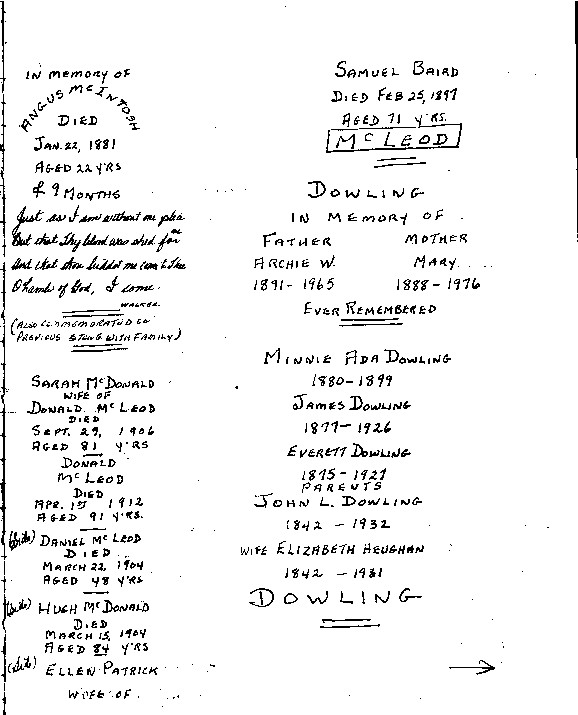 IN MEMORY OF
ANGUS McINTOSH
DIED
JAN. 22, 1881
AGED 22 Y'RS
& 9 MONTHS
Just as I am without one plea
But that Thy blood was shed for me
And that thou biddst me come to Thee
O Lamb of God, I come.
WALKER.
(ALSO COMMEMORATED ON
PREVIOUS STONE WITH FAMILY)
SARAH McDONALD
WIFE OF
DONALD McLEOD
DIED
SEPT. 29, 1906
AGED 81 Y'RS
DONALD
McLEOD
DIED
APR. 1ST 1912
AGED 91 Y'RS.
(side) DANIEL McLEOD
DIED
MARCH 22, 1904
AGED 48 Y'RS
(side) HUGH McDONALD
DIED
MARCH 15, 1904
AGED 84 Y'RS
(side) ELLEN PATRICK
WIFE OF
SAMUEL BAIRD
DIED FEB 25, 1897
AGED 71 Y'RS.
McLEOD
DOWLING
IN MEMORY OF
FATHER MOTHER
ARCHIE W. MARY
1891-1965 1888-1976
EVER REMEMBERED
MINNIE ADA DOWLING
1880-1899
JAMES DOWLING
1877-1926
EVERETT DOWLING
1875-1927
PARENTS
JOHN L. DOWLING
1842 - 1932
WIFE ELIZABETH HEUGHAN
1842 - 1931
DOWLING